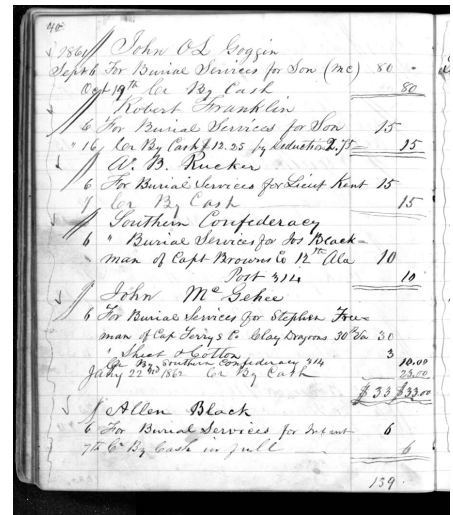 40
1861 John O L Goggin
Sept 6 For Burial Services for Son (mc) 80
Oct 19th Cr By Cash 80
Robert Franklin
6 For Burial Services for Son 15
" 16 Cr By Cash $12.25 by deduction 2.75 = 15
W. B. Rucker
6 For Burial Services for Lieut Kent 15
9 Cr By Cash 15
Southern Confederacy
6 " Burial Services for Jos Black=
man of Capt Browns Co 12th Ala 10
Post 314 10
John McGehee
6 For Burial Services for Stephen Free=
man of Cap Terry's Co Clay Dragoons 30th Va 30
" Sheet & Cotton 3
Cr By Southern Confederacy 314 10.00
Jany 22nd 1862 Cr By Cash 23.00
$33 $33.00
Allen Black
6 For Burial Services for Infant 6
7th Cr By Cash in full 6
139